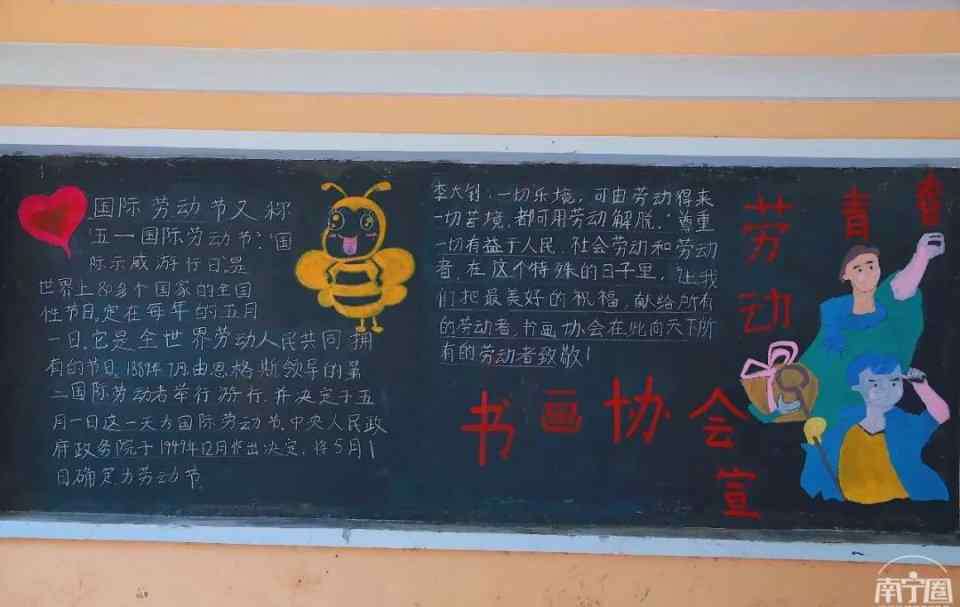 国际劳动节又称
“五一国际劳动节”、“国
际示威游行日”是
世界上80多个国家的全国
性节日,定在每年的五月
一日.它是全世界劳动人民共同拥
有的节日.1889年7月.由恩格斯领导的第
二国际劳动者举行游行.并决定于五
月一日这一天为国际劳动节.中央人民政
府政务院于1949年12月作出决定,将5月1
日确定为劳动节.
李大钊:一切乐境,可由劳动得来
一切苦境.都可用劳动解脱.尊重
一切有益于人民.社会劳动和劳动
者.在这个特殊的日子里.让我
们把最美好的祝福,献给所有
的劳动者.书画协会在此向天下所
有的劳动者致敬!
劳动
青春
书画协会宣
南宁圈